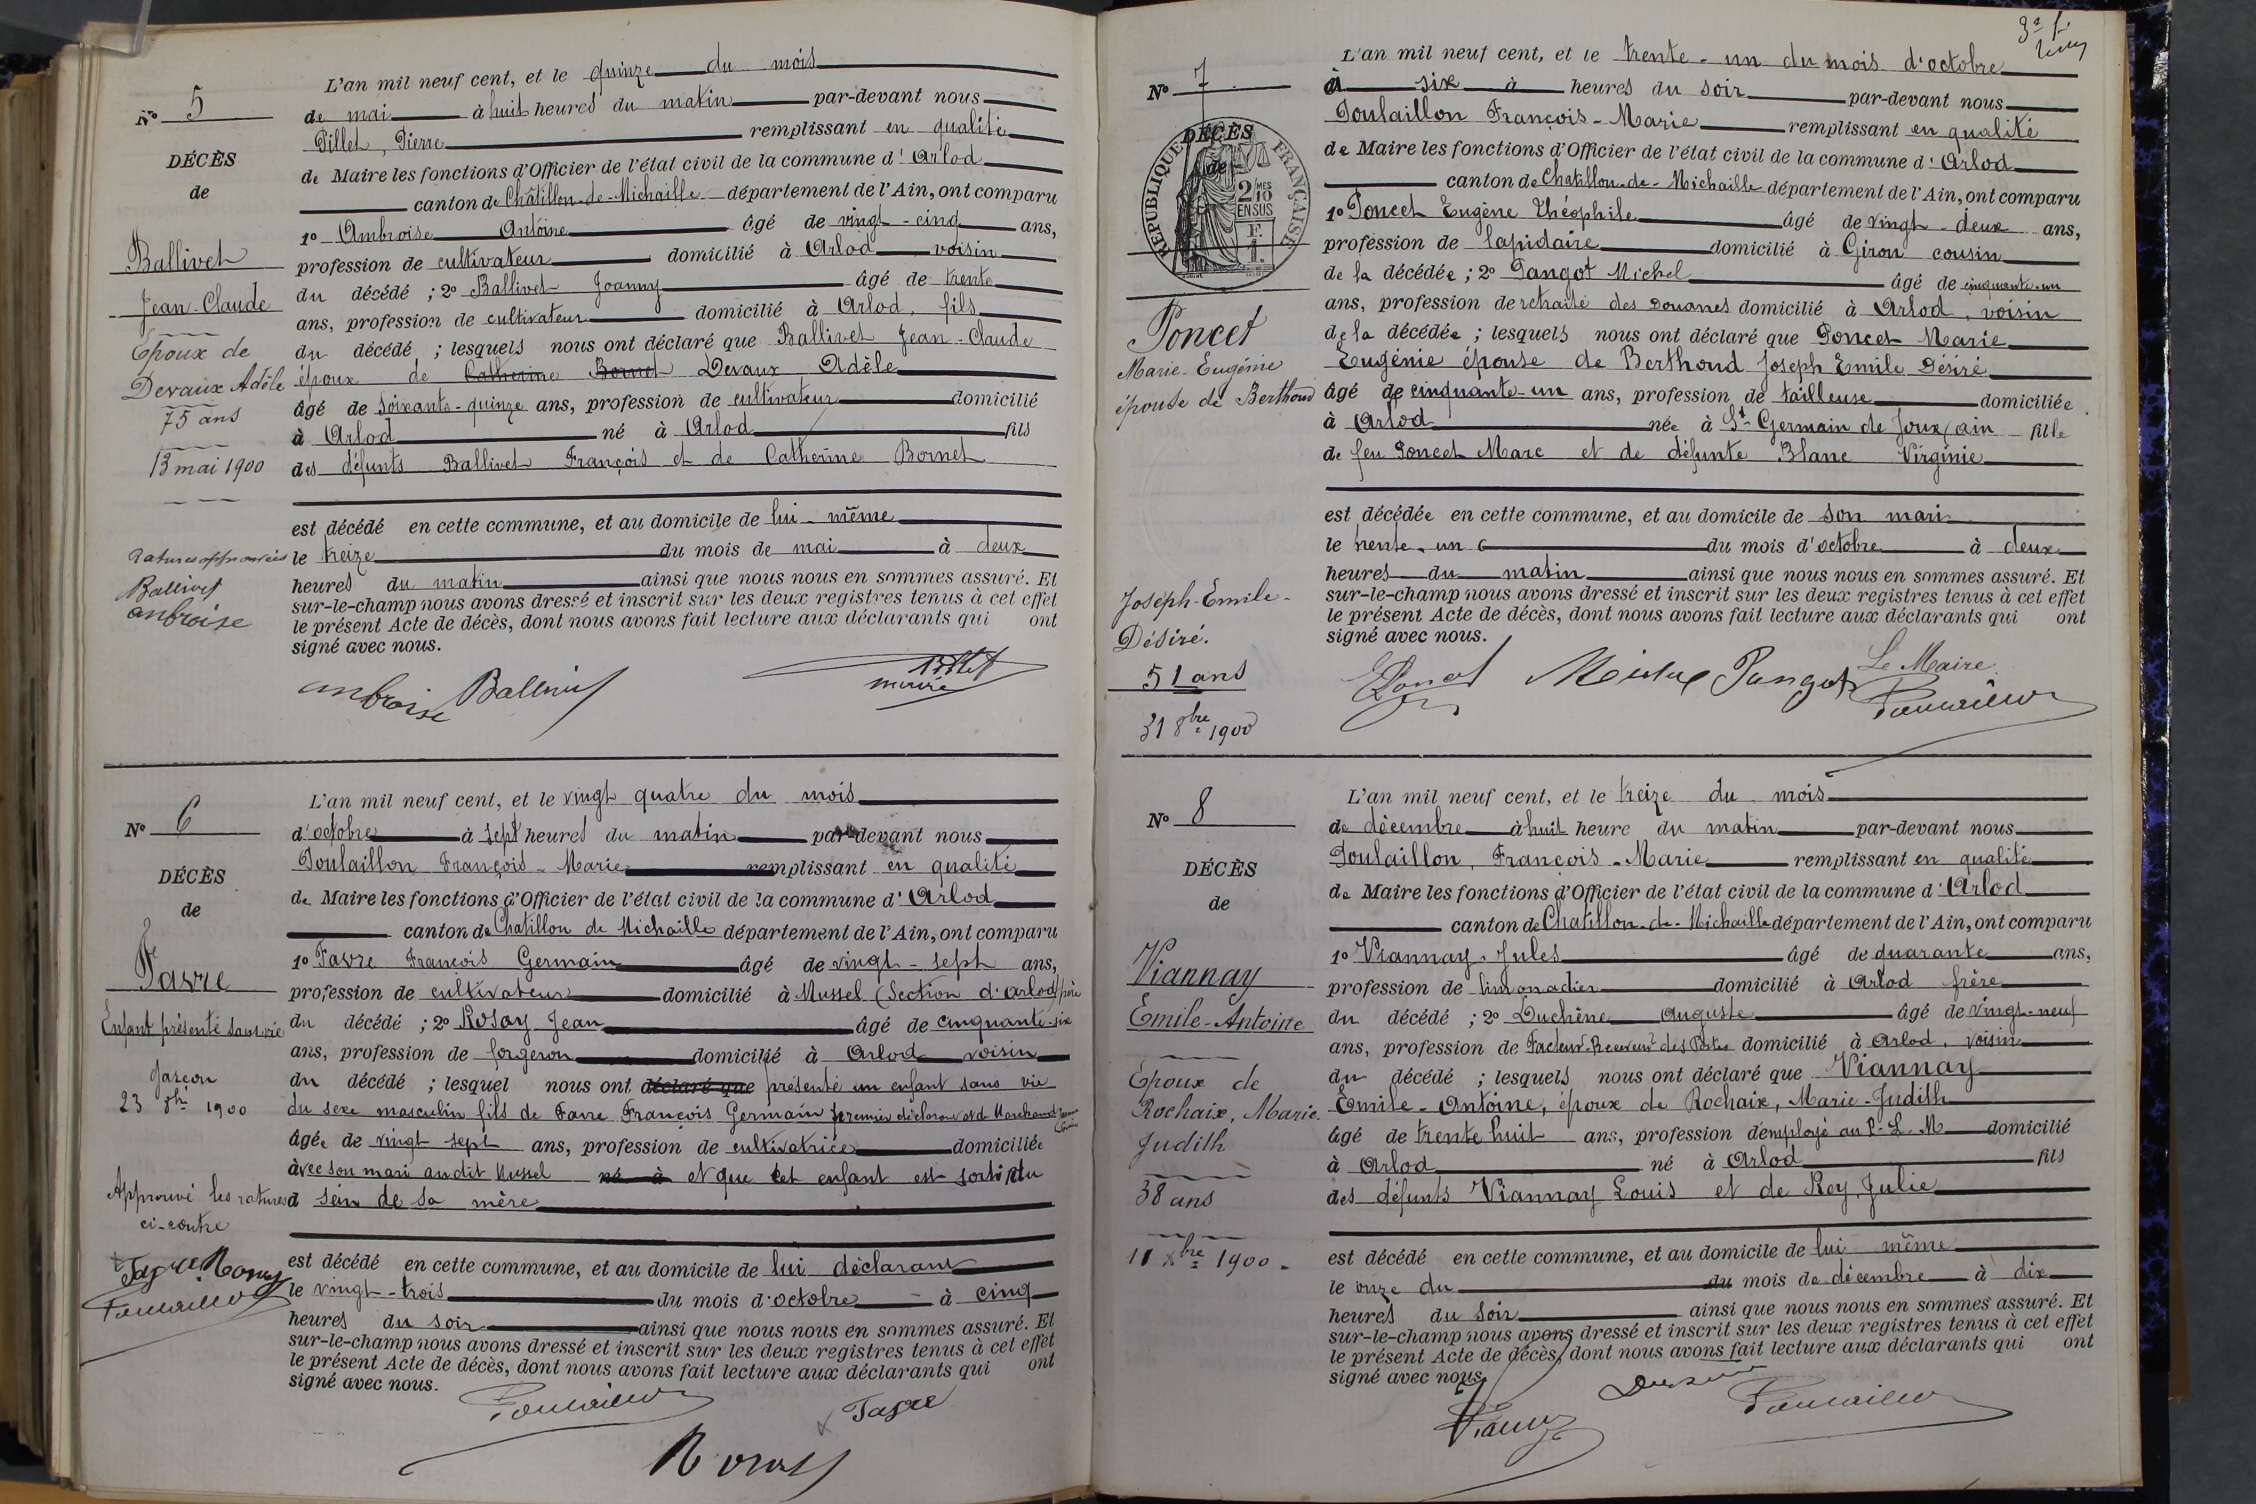 N° 5
DÉCÈS
de
Ballivet
Jean-Claude
Époux de
Devaux Adèle
75 ans
13 mai 1900
Ratures approuvées
Ballivet
ambroise
L'an mil neuf cent, et le quinze du mois
de mai à huit heures du matin par-devant nous
Pillet, Pierre remplissant en qualité
de Maire les fonctions d'Officier de l'état civil de la commune d'Arlod
canton de Châtillon-de-Michaille département de l'Ain, ont comparu
1° Ambroise Antoine âgé de vingt-cinq ans,
profession de cultivateur domicilié à Arlod voisin
du décédé ; 2° Ballivet Joanny âgé de trente
ans, profession de cultivateur domicilié à Arlod, fils
du décédé ; lesquels nous ont déclaré que Ballivet Jean-Claude
époux de Catherine Bornet Devaux Adèle
âgé de soixante-quinze ans, profession de cultivateur domicilié
à Arlod né à Arlod fils
des défunts Ballivet François et de Catherine Bornet
est décédé en cette commune, et au domicile de lui-même
le treize du mois de mai à deux
heures du matin ainsi que nous nous en sommes assuré. Et
sur-le-champ nous avons dressé et inscrit sur les deux registres tenus à cet effet
le présent Acte de décès, dont nous avons fait lecture aux déclarants qui ont
signé avec nous.
ambroise Ballivet Pillet
maire
N° 6
DÉCÈS
de
Favre
Enfant présenté sans vie
garçon
23 8bre 1900
Approuvé les ratures
ci-contre
Favre Rosay
Poulaillon
L'an mil neuf cent, et le vingt quatre du mois
d'octobre à sept heures du matin par-devant nous
Poulaillon François-Marie remplissant en qualité
de Maire les fonctions d'Officier de l'état civil de la commune d'Arlod
canton de Chatillon de Michaille département de l'Ain, ont comparu
1° Favre François Germain âgé de vingt-sept ans,
profession de cultivateur domicilié à Mussel (Section d'Arlod) père
du décédé ; 2° Rosay Jean âgé de cinquante-six
ans, profession de forgeron domicilié à Arlod voisin
du décédé ; lesquel nous ont déclaré que présenté un enfant sans vie
du sexe masculin fils de Favre François Germain premier déclarant et de Marchand
âgée de vingt sept ans, profession de cultivatrice domiciliée
avec son mari audit Mussel né à et que cet enfant est sorti du
d sein de sa mère
est décédé en cette commune, et au domicile de lui déclarant
le vingt-trois du mois d'octobre à cinq
heures du soir ainsi que nous nous en sommes assuré. Et
sur-le-champ nous avons dressé et inscrit sur les deux registres tenus à cet effet
le présent Acte de décès, dont nous avons fait lecture aux déclarants qui ont
signé avec nous.
Poulaillon Favre
Rosay
N° 7
DÉCÈS
de
RÉPUBLIQUE FRANÇAISE
2/10 MES
EN SUS
F.
1.
Poncet
Marie-Eugénie
épouse de Berthoud
Joseph-Emile-
Désiré.
51 ans
31 8bre 1900
L'an mil neuf cent, et le trente-un du mois d'octobre
à six à heures du soir par-devant nous
Poulaillon François-Marie remplissant en qualité
de Maire les fonctions d'Officier de l'état civil de la commune d'Arlod
canton de Chatillon-de-Michaille département de l'Ain, ont comparu
1° Poncet Eugène Théophile âgé de vingt-deux ans,
profession de lapidaire domicilié à Giron cousin
de la décédée ; 2° Pangot Michel âgé de cinquante-un
ans, profession de retraité des Douanes domicilié à Arlod, voisin
de la décédée ; lesquels nous ont déclaré que Poncet Marie
Eugénie épouse de Berthoud Joseph Emile Désiré
âgé de cinquante-un ans, profession de tailleuse domiciliée
à Arlod née à St Germain de Joux (ain fille
de feu Poncet Marc et de défunte Blanc Virginie
est décédée en cette commune, et au domicile de son mari
le trente-un du mois d'octobre à deux
heures du matin ainsi que nous nous en sommes assuré. Et
sur-le-champ nous avons dressé et inscrit sur les deux registres tenus à cet effet
le présent Acte de décès, dont nous avons fait lecture aux déclarants qui ont
signé avec nous.
Le Maire
EPoncet Michel Pangot Poulaillon
N° 8
DÉCÈS
de
Viannay
Emile-Antoine
Epoux de
Rochaix, Marie
Judith
38 ans
11 Xbre 1900.
L'an mil neuf cent, et le treize du mois
de décembre à huit heure du matin par-devant nous
Poulaillon, François-Marie remplissant en qualité
de Maire les fonctions d'Officier de l'état civil de la commune d'Arlod
canton de Chatillon-de-Michaille département de l'Ain, ont comparu
1° Viannay Jules âgé de quarante ans,
profession de limonadier domicilié à Arlod frère
du décédé ; 2° Duchêne Auguste âgé de vingt-neuf
ans, profession de Facteur-Receveur des Postes domicilié à Arlod, voisin
du décédé ; lesquels nous ont déclaré que Viannay
Emile-Antoine, époux de Rochaix, Marie-Judith
âgé de trente huit ans, profession d'employé au P.L.M domicilié
à Arlod né à Arlod fils
des défunts Viannay Louis et de Rey, Julie
est décédé en cette commune, et au domicile de lui même
le onze du du mois de décembre à dix
heures du soir ainsi que nous nous en sommes assuré. Et
sur-le-champ nous avons dressé et inscrit sur les deux registres tenus à cet effet
le présent Acte de décès, dont nous avons fait lecture aux déclarants qui ont
signé avec nous.
Poulaillon